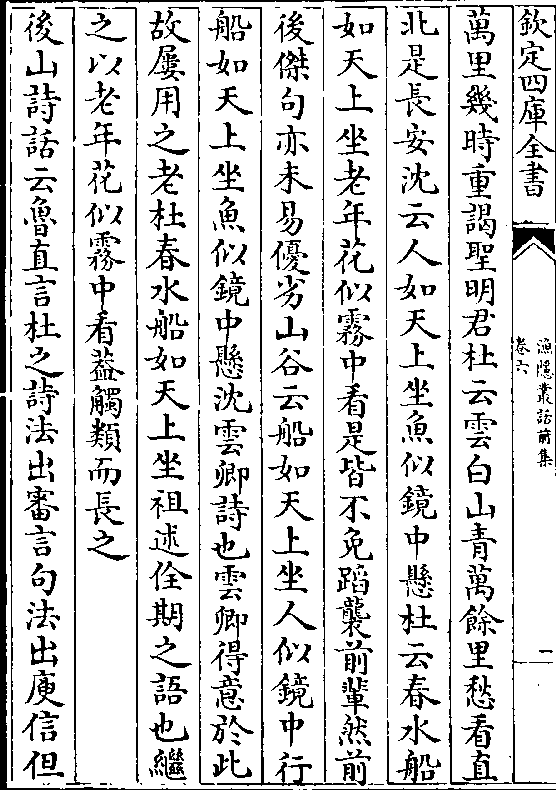 欽定四庫全書
漁隱叢話前集
卷六
二
萬里幾時重謁聖明君杜云雲白山青萬餘里愁看直
北是長安沈云人如天上坐魚似鏡中懸杜云春水船
如天上坐老年花似霧中看是皆不免蹈襲前輩然前
後傑句亦未易優劣山谷云船如天上坐人似鏡中行
船如天上坐魚似鏡中懸沈雲卿詩也雲卿得意於此
故屢用之老杜春水船如天上坐祖述佺期之語也繼
之以老年花似霧中看葢觸類而長之
後山詩話云魯直言杜之詩法出審言句法出庾信但